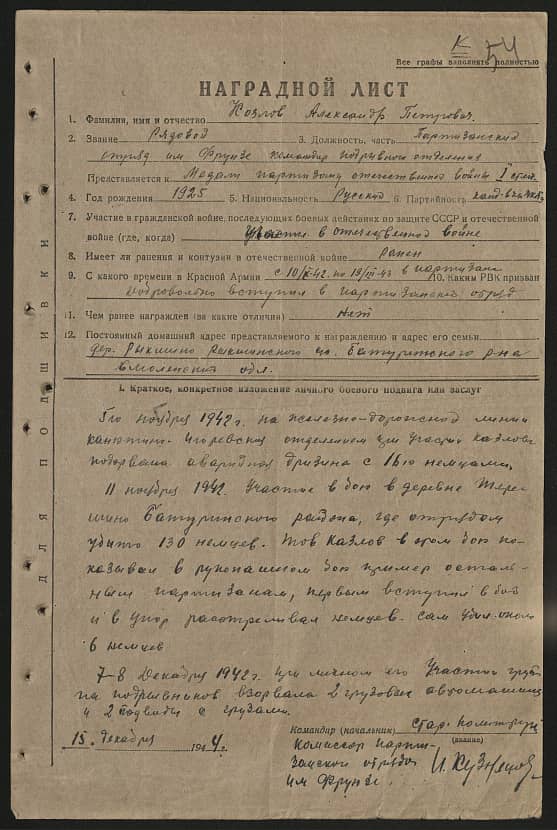 К 54
Все графы заполнять полностью
НАГРАДНОЙ ЛИСТ
1. Фамилия, имя и отчество Козлов Александр Петрович.
2. Звание Рядовой 3. Должность, часть Партизанский
отряд им Фрунзе командир подрывного отделения
Представляется к Медали партизану отечественной войны I степ.
4. Год рождения 1925 5. Национальность Русский 6. Партийность
7. Участие в гражданской войне, последующих боевых действиях по защите СССР и отечественной
войне (где, когда) Участ в отечественной войне
8. Имеет ли ранения и контузии в отечественной войне Ранен
9. С какого времени в Красной Армии в партизан 10. Каким РВК призван
Добровольно вступил в партизанский отряд
11. Чем ранее награжден (за какие отличия) нет
12. Постоянный домашний адрес представляемого к награждению и адрес его семьи
дер. Батуринского р-на
Смоленской обл.
ДЛЯ ПОДШИВКИ
I. Краткое, конкретное изложение личного боевого подвига или заслуг
5го ноября 1942г. на железно-дорожной линии
Игоревская отделением при участии Казлова
подорвана дризина с 16ю немцами.
11 ноября 1942. Участие в бою в деревне
Батуринского района, где отрядом
убито 130 немцев. Тов Казлов в этом бою по-
казывал в рукопашном бою пример осталь-
ным партизанам, первым вступил в бой
и в упор расстреливал немцев. Сам убил около
6 немцев
7-8 Декабря 1942г. при личном его Участии груп-
па подрывников взорвала 2 грузовые автомашины
и 2 подводы с грузами.
15. декабря 194
Командир (начальник) Стар. политрук
(звание)
Комиссар парти-
занской отряда
им Фрунзе. И. Кузнецов